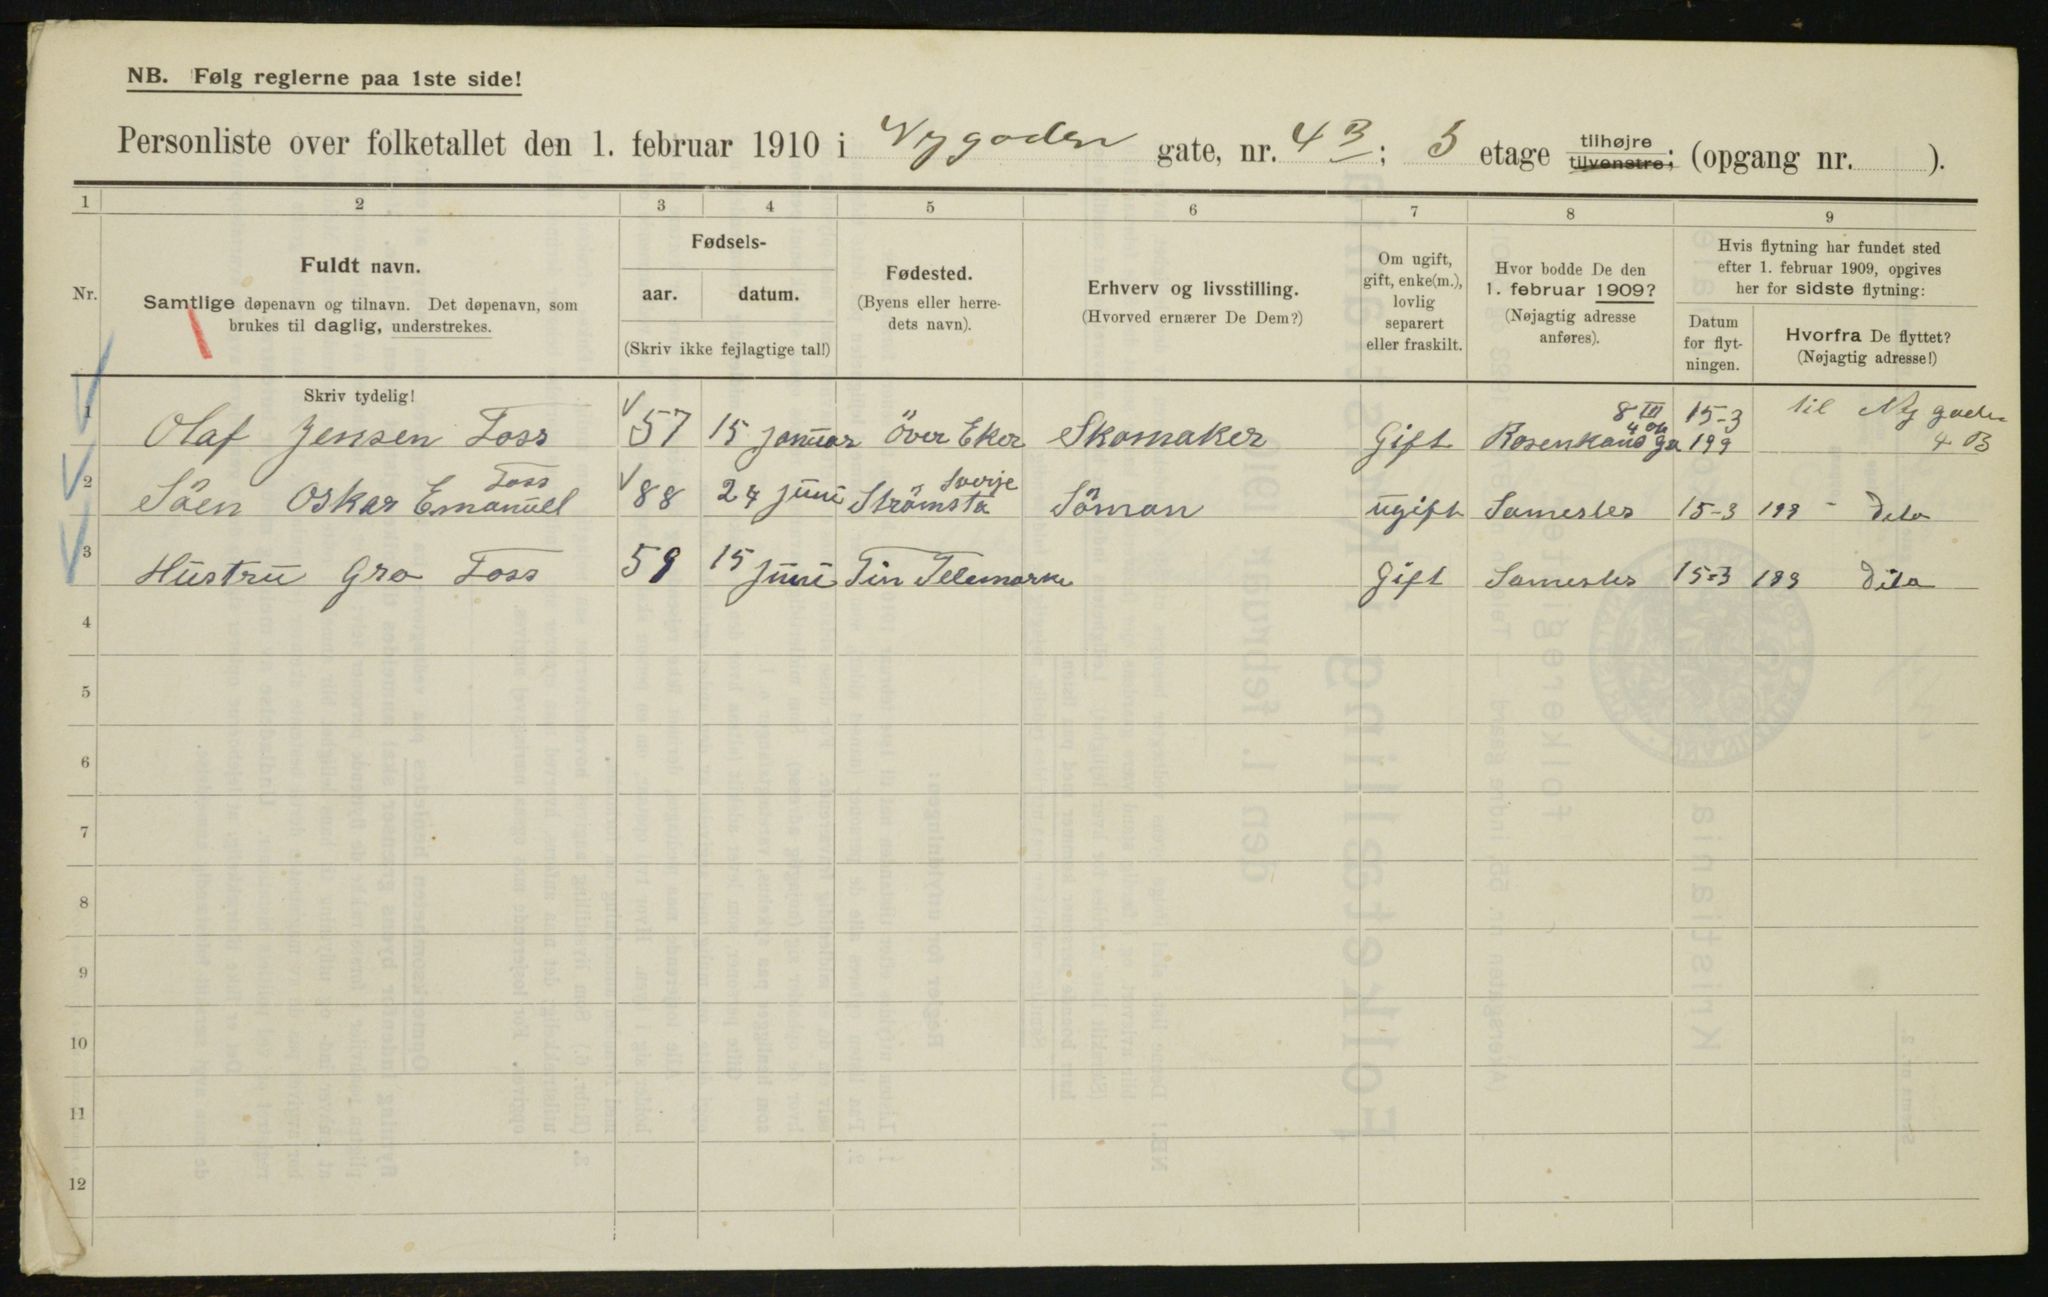 NB. Følg reglerne paa 1ste side!
Personliste over folketallet den 1. februar 1910 i Nygaden gate, nr. 4 B; 5 etage tilhøjre tilvenstre; (opgang nr. ).
1 2 3 4 5 6 7 8 9
Nr.
Fuldt navn.
Samtlige døpenavn og tilnavn. Det døpenavn, som
brukes til daglig, understrekes.
Fødsels-
aar. datum.
(Skriv ikke fejlagtige tal!)
Fødested.
(Byens eller herre-
dets navn).
Erhverv og livsstilling.
(Hvorved ernærer De Dem?)
Om ugift,
gift, enke(m.),
lovlig
separert
eller fraskilt.
Hvor bodde De den
1. februar 1909?
(Nøjagtig adresse
anføres).
Hvis flytning har fundet sted
efter 1. februar 1909, opgives
her for sidste flytning:
Datum
for flyt-
ningen.
Hvorfra De flyttet?
(Nøjagtig adresse!)
Skriv tydelig!
1 Olaf Jensen Foss 57 15 januar över Eker Skomaker Gift Rosenkans ga 8 III 15-3 199 til Ny gade 4 B
2 Söen Oskar Emanuel Foss 88 24 juni Strömsta Sverje Söman ugift Samesles 15-3 199 - Dito
3 Hustru Gro Foss 59 15 juni Tin Telemarken Gift Samesles 15-3 199 Dito
4
5
6
7
8
9
10
11
12